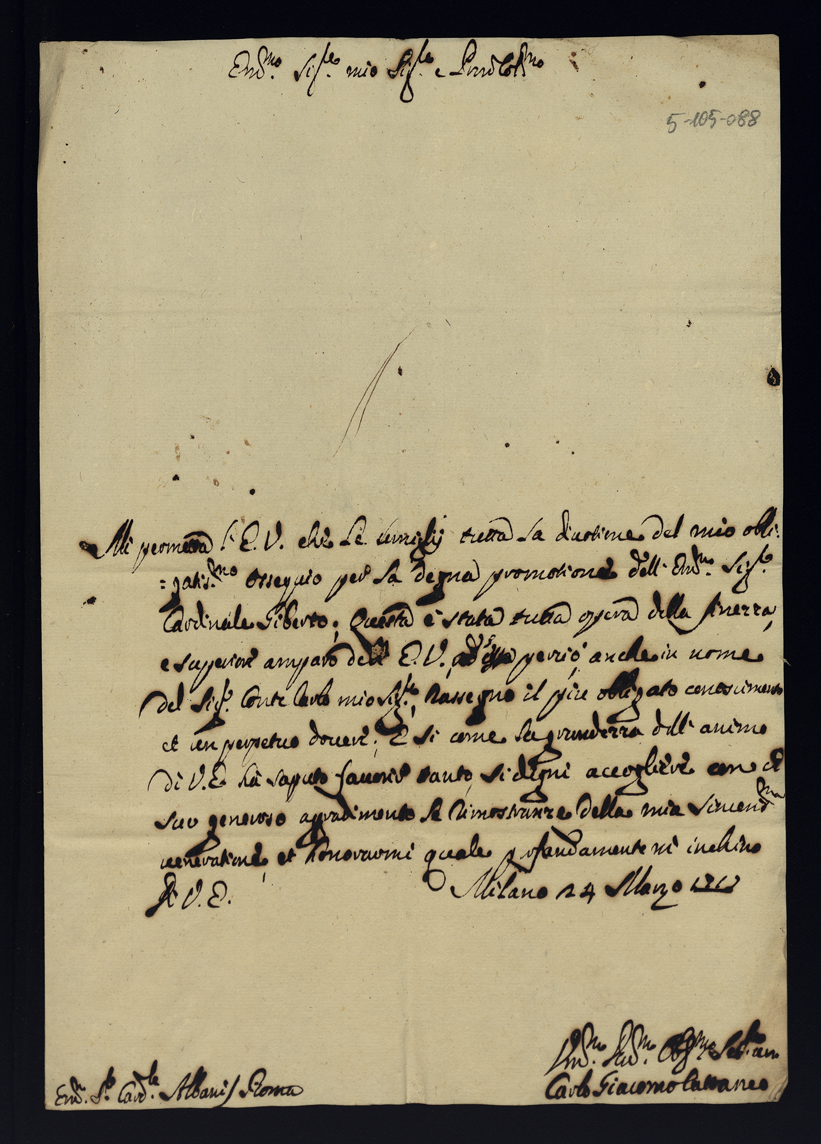 Em.mo Sig.re mio Sig.re e Pron Col.mo
5-105-088
Mi permetta l'E.V. che Le umilij tutta la divotione del mio obli-
=gatis.mo ossequio per la degna promotione dell' Em.mo Sig.re
Cardinale Giberto; Questa è stata tutta opera della finezza,
e superiore amparo dell' E.V., perciò anche in nome
del Sig.r Conte Carlo mio Sig.re, Rassegno il più obligato conoscimento
et un perpetuo dovere; E si come la grandezza dell' animo
di V.E. hà saputo favorir tanto, si degni accogliere con il
suo generoso aggradimento le rimostranze della mia
veneratione, et honorarmi quale profundamente mi inchino
Di V.E. Milano 24 Marzo
Em.mo S.r Card.le Albani / Roma
Hum.mo Obl.mo
Carlo Giacomo Cattaneo